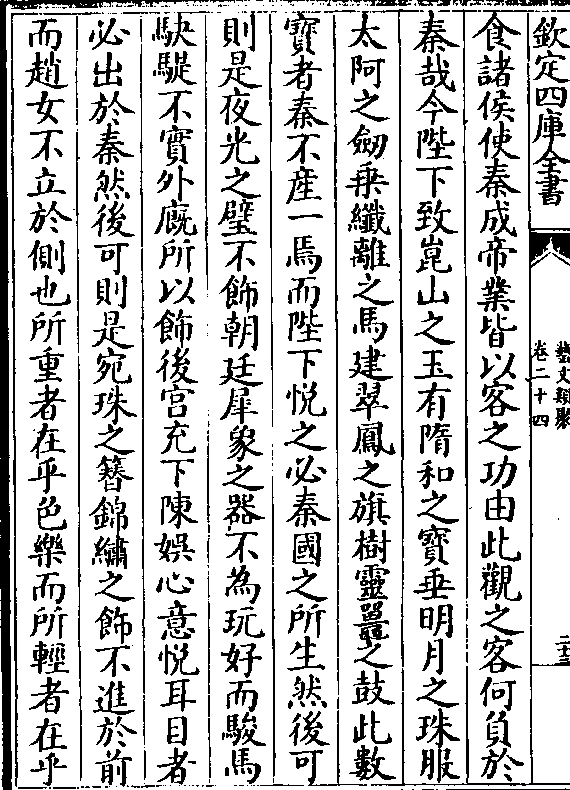 欽定四庫全書
藝文類聚
卷二十四
二十三
食諸侯使秦成帝業皆以客之功由此觀之客何負於
秦哉今陛下致崑山之玉有隋和之寶垂明月之珠服
太阿之劒乗纖離之馬建翠鳳之旗樹靈鼉之鼓此數
寳者秦不産一焉而陛下悦之必秦國之所生然後可
則是夜光之璧不飾朝廷犀象之器不為玩好而駿馬
駃騠不實外廐所以飾後宫充下陳娱心意悦耳目者
必出於秦然後可則是宛珠之簪錦繡之飾不進於前
而趙女不立於側也所重者在乎色樂而所輕者在乎